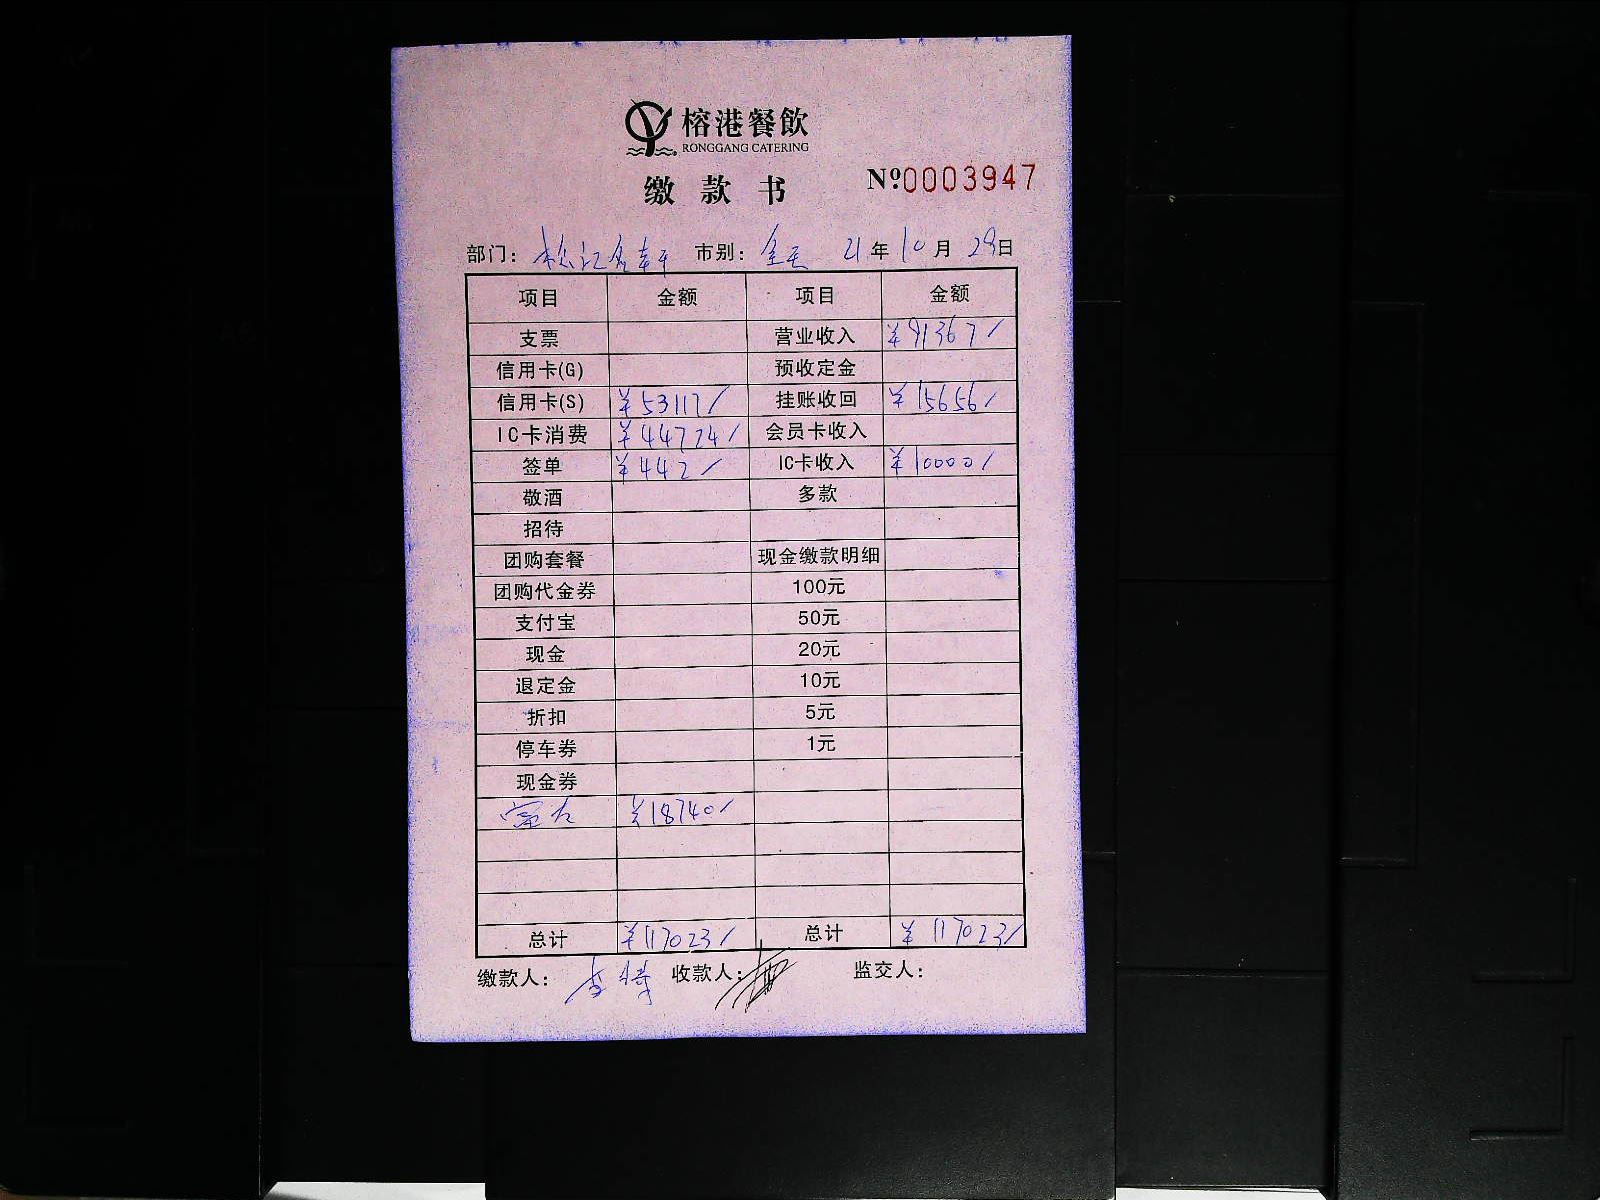 榕港餐飲
RONGGANG CATERING
缴款书 Nº0003947
部门: 松江名轩 市别: 全天 21年10月29日
项目 金额 项目 金额
支票 营业收入 ¥91367/
信用卡(G) 预收定金
信用卡(S) ¥53117/ 挂账收回 ¥15656/
IC卡消费 ¥44724/ 会员卡收入
签单 ¥442/ IC卡收入 ¥10000/
敬酒 多款
招待
团购套餐 现金缴款明细
团购代金券 100元
支付宝 50元
现金 20元
退定金 10元
折扣 5元
停车券 1元
现金券
¥18740/
总计 ¥117023/ 总计 ¥117023/
缴款人: 收款人: 监交人: